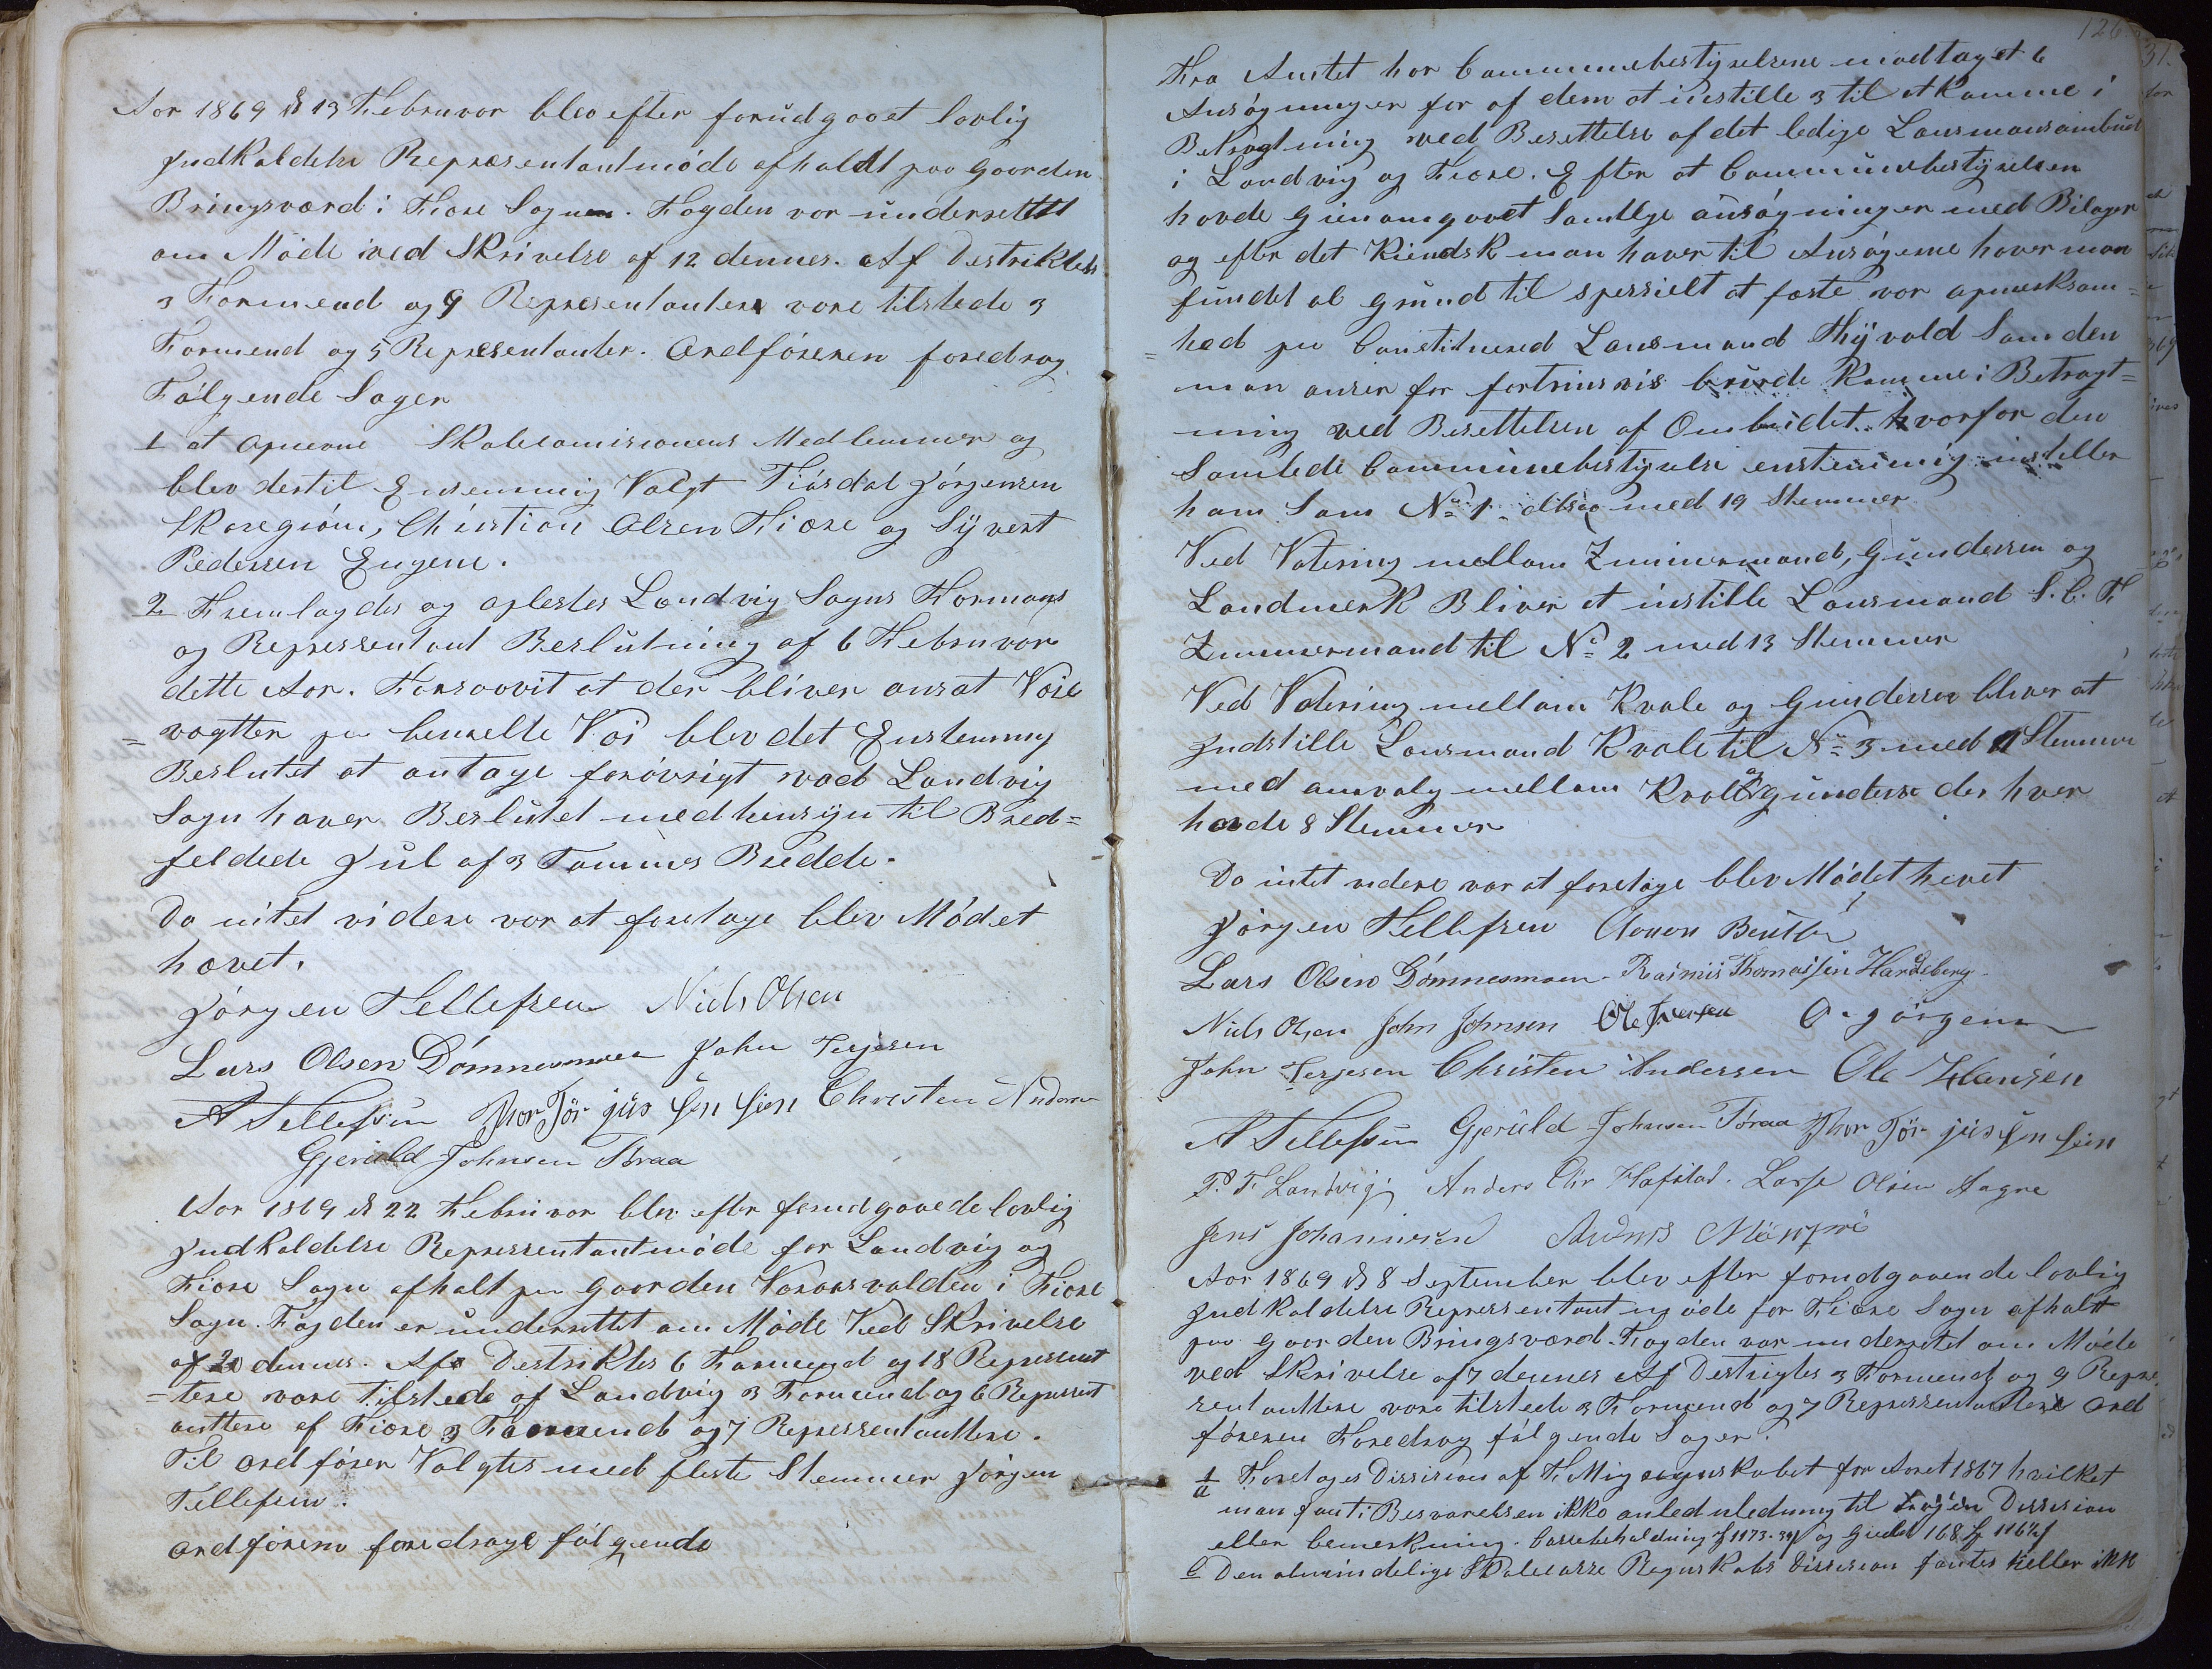 Aor 1869 d 13 Februvor blev efter forudgooet lovlig
Jndkaldelse Repræsentantmöde afholdt poo Goorden
Bringsværd i Fiære Sognen. Fogden vor undersettet
om Möde ved Skrivelse af 12 dennes. Af Destriktets
3 Formend og 9 Represententer vore tilstede 3
Formend og 5 Represententer. Ordförenen foredrog
Fölgende Soger
1 at Skolecomissionens Medlemmer og
blev dertil Ensemmig Valgt Fiösdal Jörgensen
Skoregröm, Christian Olsen Fiære og Syvert
Pedersen Engene.
2 Fremlagdes og oplestes Landvig Sogns Formans
og Repressentant Beslutning af 6 Februvor
dette Aor. Forsaavit at der bliver ansat Voie
= vogtter paa benevte Voi blev det Enstemmig
Beslutet at antage forövrigt vad Landvig
Sogn haver Beslutet med hensyn til Bred=
feldede Jul af 3 Tommes Bredde.
Da intet videre var at foretage blev Mödet
hævet.
Jörgen Tellefsen Niels Olsen
Lars Olsen Dömmesmoen John Terjesen
A Tellefsen Thor Tör jus sen sien Christen Anderen
Gjeruld Johnsen Braa
Aor 1869 d 22 Februvor blev efter forudgaaede lovlig
Jndkaldelse Repressentantmöde for Landvig og
Fiære Sogn afhalt paa Goorden Vaaransvolden i Fiære
Sogn. Fogden er undersettet om Möde Ved Skrivelse
af 20 dennes. Af Destriktes 6 Formend og 18 Represent
= tere vore tilstede af Landvig 3 Formend og 6 Repressent
anttere af Fiære 3 Formend og 7 Repressentanttere.
Til ordförer Valgtes med fleste Stemmer Jörgen
Tellefsen.
Ordföreren foredrage fölgende
126
Fra Amtet har Communebestyrelsene modtaget 6
Ansögninger for af dem at instille 3 til at Komme i
Betragtning ved Besettelse af det ledige Lensmansombud
i Landvig og Fiære. Efter at Communebestyrelsen
havde gienamgaaet Samtlige ansögninger med Bilager
og efter det Kiendsk man haver til Ansögerne haver man
fundet al grund til spessielt at fæste vor apmerksom=
= hed paa Constituered Lensmand Thyvold Som den
man anser for fortrinsvis burde Komme i Betragt=
ning ved Besettelsen af Ombudet. hvorfor den
Samlede Communebestyrelse enstemmig instiller
ham Som No 1 altsaa med 19 Stemmer
Ved Votering mellom Zimmermand, Gundersen og
Landmerk Bliver at instille Lensmand S. C. F
Zimmermand til No 2 med 13 Stemmer
Ved Votering mellom Kvale og Gundersen bliver at
Jndstille Lensmand Kvale til No 3 med 11 Stemmer
med omvalg mellom Kvale og Gunderse der hver
havde 8 Stemmer
Da intet videre var at foretage blev Mödet hevet
Jörgen Tellefsen Aanon Bentsen
Lars Olsen Dömmesmoen. Rasmus Thomassen Hardeberg.
Niels Olsen John Johnsen Ole Iversen O. Jörgensen
John Terjesen Christen Andersen Ole Hansen
A Tellefsen Gjeruld Johnsen Töraa Thor Tör jus sen sien
P. F. Landvig Anders Chr Hafstad. Lasse Olsen Aagre
Jens Johannesen
Aor 1869 d 8 September blev efter forudgaaende lovlig
Jndkaldelse Repressentantmöde for Fiære Sogn afhalt
paa Goorden Bringsværd. Fogden var undersetet om Möde
ved Skrivelse af 7 dennes Af Destrigtes 3 Formend og 9 Repre
sentanttere vore tilstede 3 Formend og 7 Repressentantere Ord
föreren Foredrog fölgende Soger.
1
a Foretages Dissision af Regnskabet for Aoret 1867 hvilket
man fant i Besvarelsen ikke anled uledning til nogen Dissision
eller bemerkning. Cassebehaldning og Gield
b Den almindelige Skolecasse Regnskabs Dissision fantes heller ikke